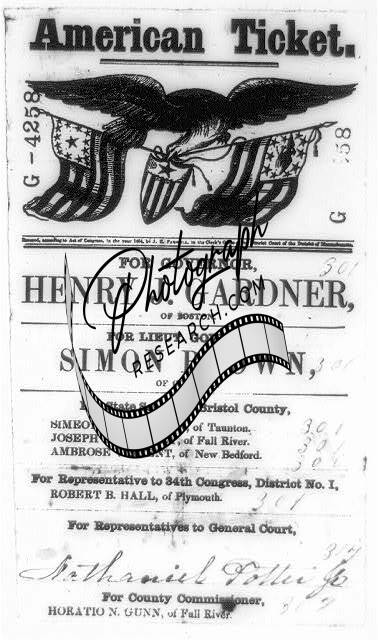 American Ticket.
G-4258
G 58
Entered, according to Act of Congress, in the year 1854, by J. E. in the Clerk's District Court of the District of Massachusetts
FOR GOVERNOR,
301
HENRY J. GARDNER,
OF BOSTON
FOR LIEUT GO
SIMON BROWN,
301
OF
State S Bristol County,
SIMEO of Taunton. 301
JOSEPH of Fall River. 301
AMBROSE NT, of New Bedford. 301
For Representative to 34th Congress, District No. I,
ROBERT B. HALL, of Plymouth. 301
For Representatives to General Court,
317
Nathaniel
For County Commissioner,
HORATIO N. GUNN, of Fall River. 317
Photograph
RESEARCH.COM